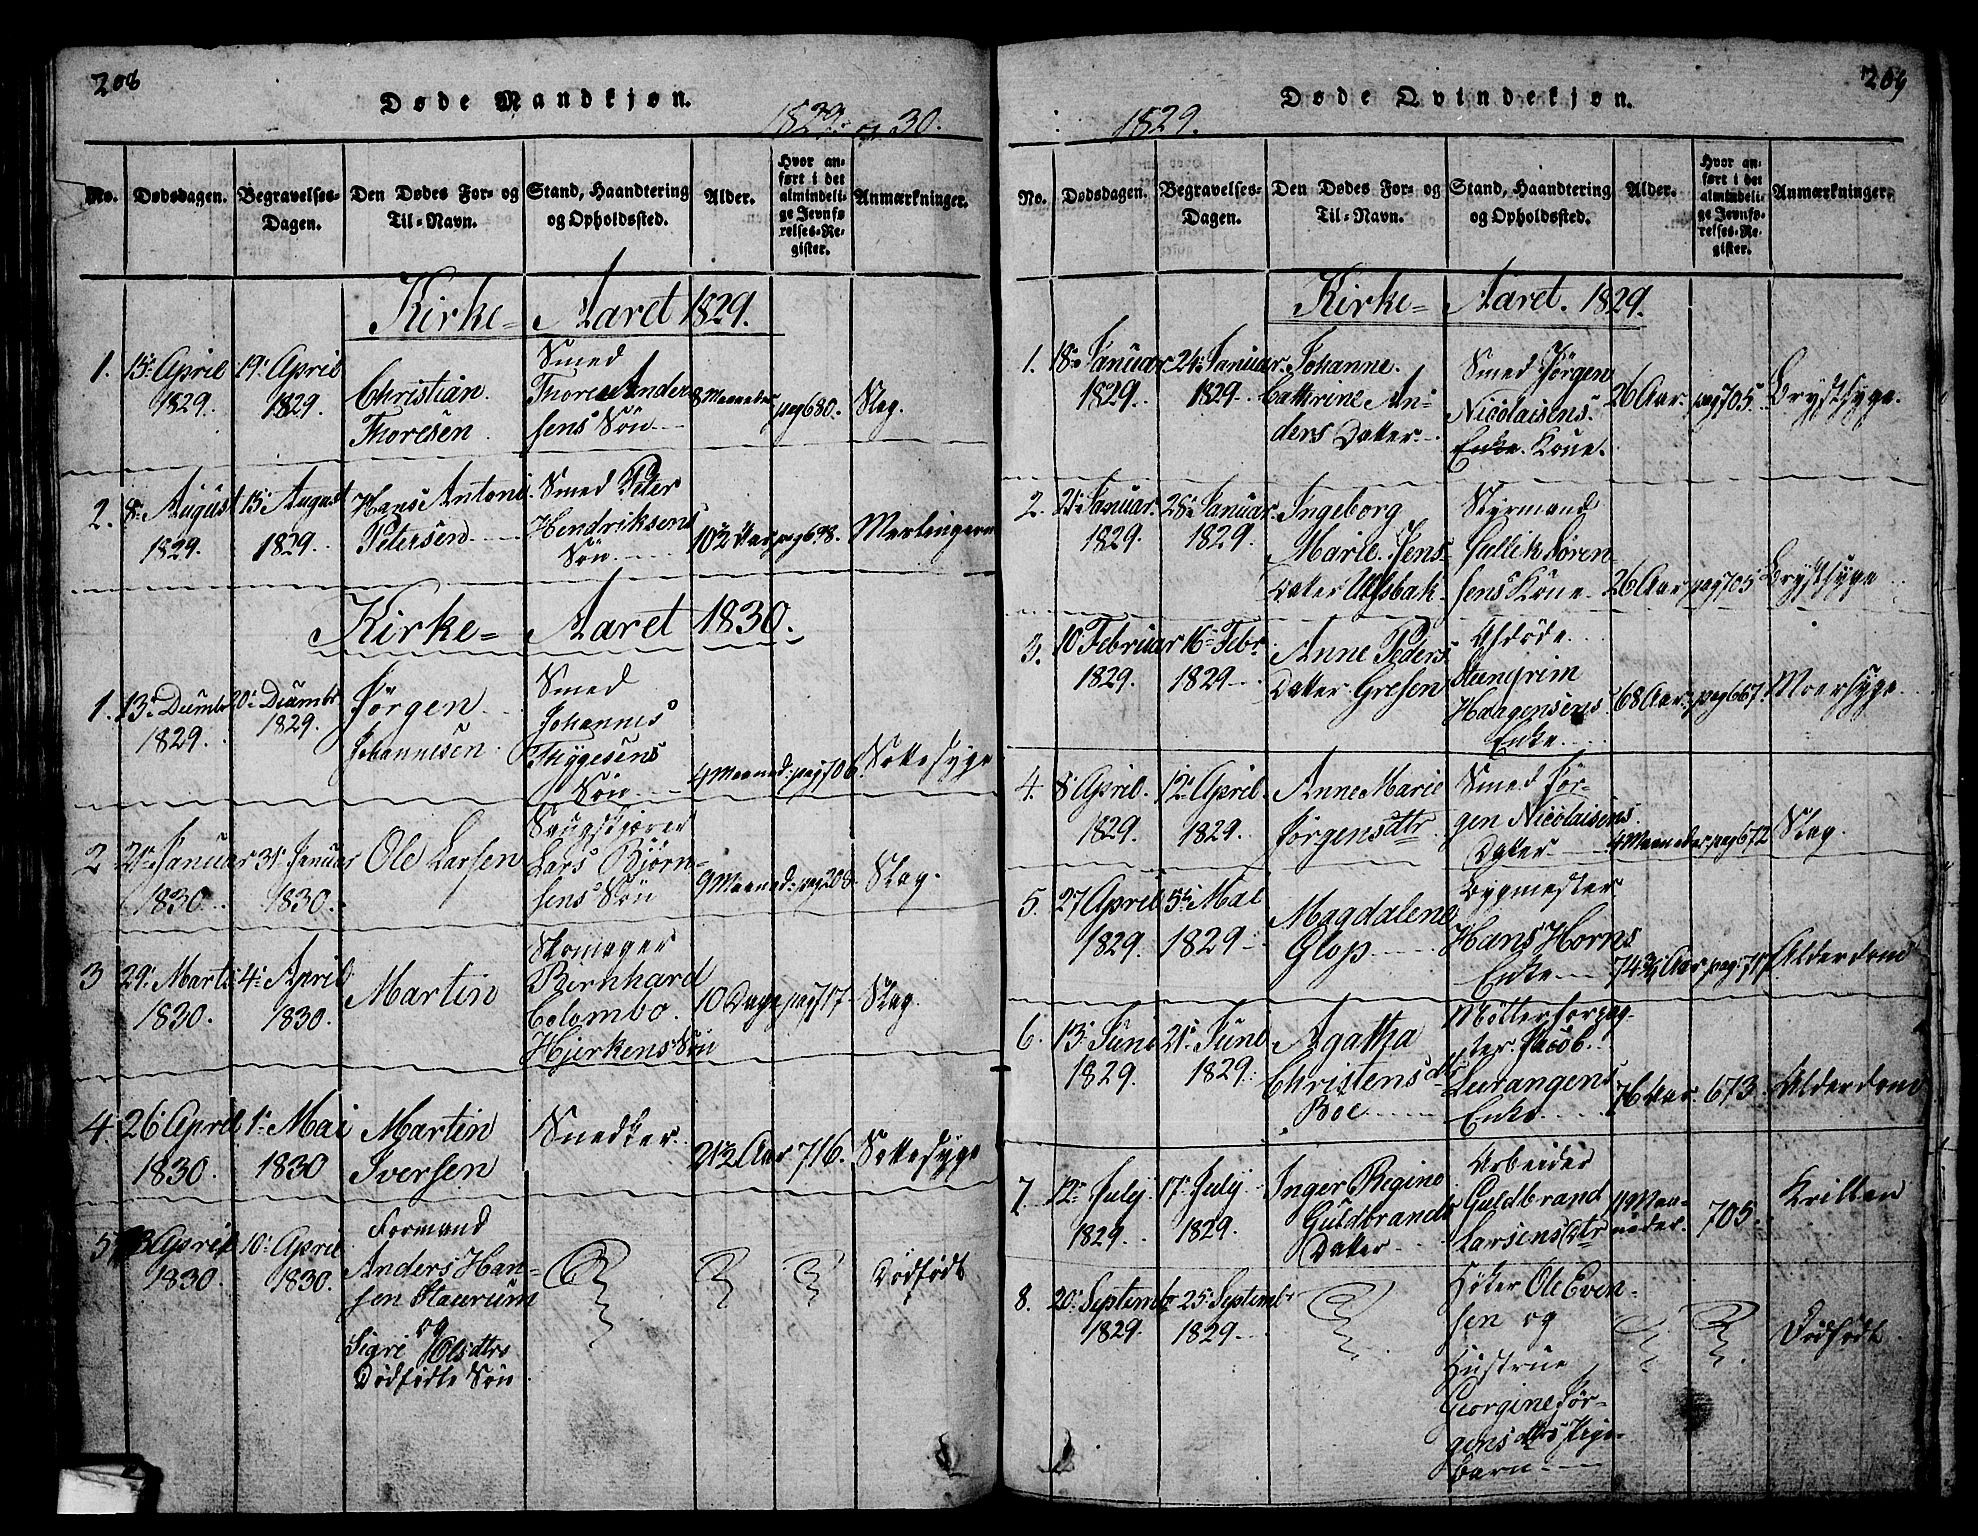 208
Døde Mandkjøn.
1829. og 30.
No.
Dødsdagen.
Begravelses-
Dagen.
Den Dødes For- og
Til-Navn.
Stand, Haandtering
og Opholdssted.
Alder.
Hvor an-
ført i det
almindeli-
ge Jevnfø
relses-Re-
gister.
Anmærkninger.
Kirke- Aaret 1829.
1. 15de April
1829.
19de April
1829.
Christian
Thoresen
Smed
Thore Ander
sens Søn
8 Maaneder
pag 680.
Slag.
2. 8de August
1829.
15de August
1829.
Hans Antoni
Petersen
Smed Peter
Hendriksens
Søn
10½ Aar
pag 698.
Kirke- Aaret 1830.
1. 13de Decembr
1829.
20de Decembr
1829.
Jørgen
Johannesen
Smed
Johannes
Thygesens
Søn
4 Maaned:
pag 706.
Sottesyge
2
1830.
31te Januar
1830.
Ole Larsen
Saugskjærer
Lars Bjørn-
sens Søn
9 Maaned:
pag 208.
Slag.
3 29de Marts
1830.
4de April
1830.
Martin
Skomager
Bernhard
Colombo
Hjerkens Søn
10 Dage
pag 717.
Slag.
4. 26de April
1830.
1te Mai
1830
Martin
Iversen
Snedker
21½ Aar
716.
Sottesyge
5 April
1830.
10de April
1830.
Formand
Anders Han-
sen Staurum
og
Sigri Olsdtrs
Dødfødte Søn
Dødfødt
209
Døde Qvindekjøn.
1829.
No.
Dødsdagen.
Begravelses-
Dagen.
Den Dødes For- og
Til-Navn.
Stand, Haandtering
og Opholdssted.
Alder.
Hvor an-
ført i det
almindeli-
ge Jevnfø-
relses-Re-
gister.
Anmærkninger.
Kirke- Aaret. 1829.
1. 18de Januar
1829.
24de Januar.
1829
Johanne
Cathrine An-
ders Datter
Smed Jørgen
Nicolaisens
Enke. Kone.
26 Aar.
pag 705.
Brystsyge.
2. 21de Januar.
1829.
28de Januar.
1829.
Ingeborg
Marie Jens
Datter Ulfsbak
Styrmand
Gullik Søren
sens Kone
26 Aar
pag 705
Brystsyge
3. 10 Februar
1829.
16de Febr.
1829
Anne Peders
Datter Gresen
Afdøde
Steengrim
Haagensens
Enke
68 Aar
pag 667.
4. 8de April.
1829.
12te April.
1829.
Anne Marie
Jørgensdtr
Smed Jør-
gen Nicolaisens
Datter
4 Maaneder
pag 672
Slag.
5. 27 April
1829.
5te Mai
1829
Magdalene
Glop
Bygmester
Hans Horns
Enke
74¾ Aar
pag. 717
Alderdom
6. 13de Juni
1829.
21de Juni
1829.
Agatha
Christensdtr
Boe
Møllerforpag-
ter Jacob
Leerangens
Enke
76 Aar.
673.
Alderdom
7. 12te July
1829.
17de July
1829.
Inger Regine
Guldbrands
Datter
Arbeider
Guldbrand
Larsens Dtr
11 Maa-
neder.
705.
Krillen
8. 20de Septembr
1829.
25de Septembr
1829.
Høker Ole Even-
sen og
Hustrue
Georgine Jør-
gensdtrs Pige-
barn
Dødfødt